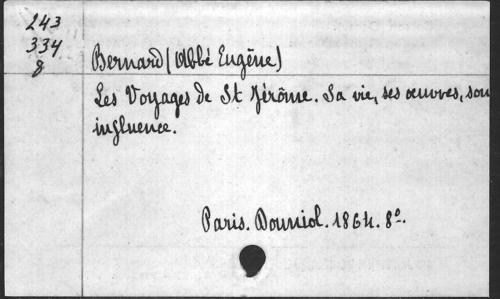 243
334
8
Bernard (Abbé Eugène)
Les Voyages de St Jérôme. Sa vie, ses œuvres, son
influence.
Paris. Douniol. 1864. 8°.